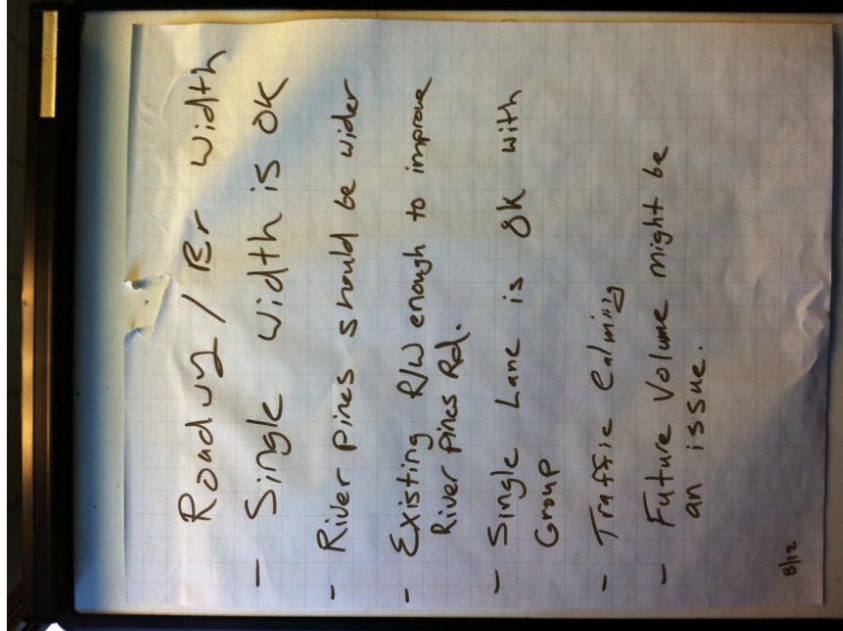 Roadwy / Br width
- Single width is OK
- River Pines should be wider
- Existing R/W enough to improve
River Pines Rd.
- Single Lane is OK with
Group
- Traffic Calming
- Future Volume might be
an issue.
8/12